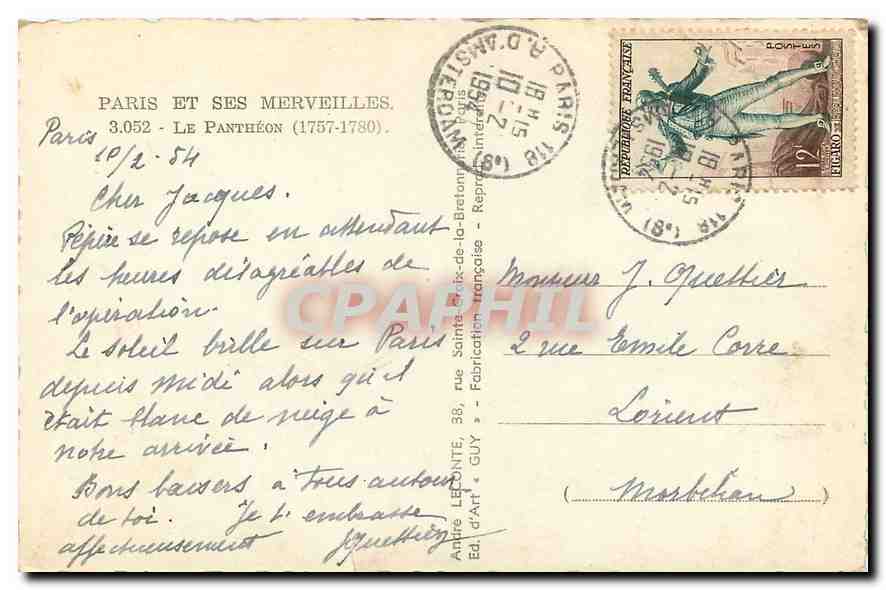 PARIS ET SES MERVEILLES.
3.052 - LE PANTHÉON (1757-1780).
Paris
10/2-54
Cher Jacques.
se repose en attendant
les heures désagréables de
l'opération.
Le soleil brille sur Paris
depuis midi alors qu'il
était blanc de neige à
notre arrivée.
Bons baisers à tous autour
de toi. Je t'embrasse
affectueusement JQuettier
André LECONTE, 38, rue Sainte-Croix-de-la-Bretonnerie, Paris
Ed. d'Art « GUY » - Fabrication française - Reproduction interdite
PARIS 118
18 H 15
10 - 2
1954
R. D'AMSTERDAM (8e)
RÉPUBLIQUE FRANÇAISE
POSTES
12F
FIGARO
PARIS 118
18 H 15
10 - 2
1954
(8e)
CPAPHIL
Monsieur J. Quettier
2 rue Emile Corre
Lorient
(Morbihan)